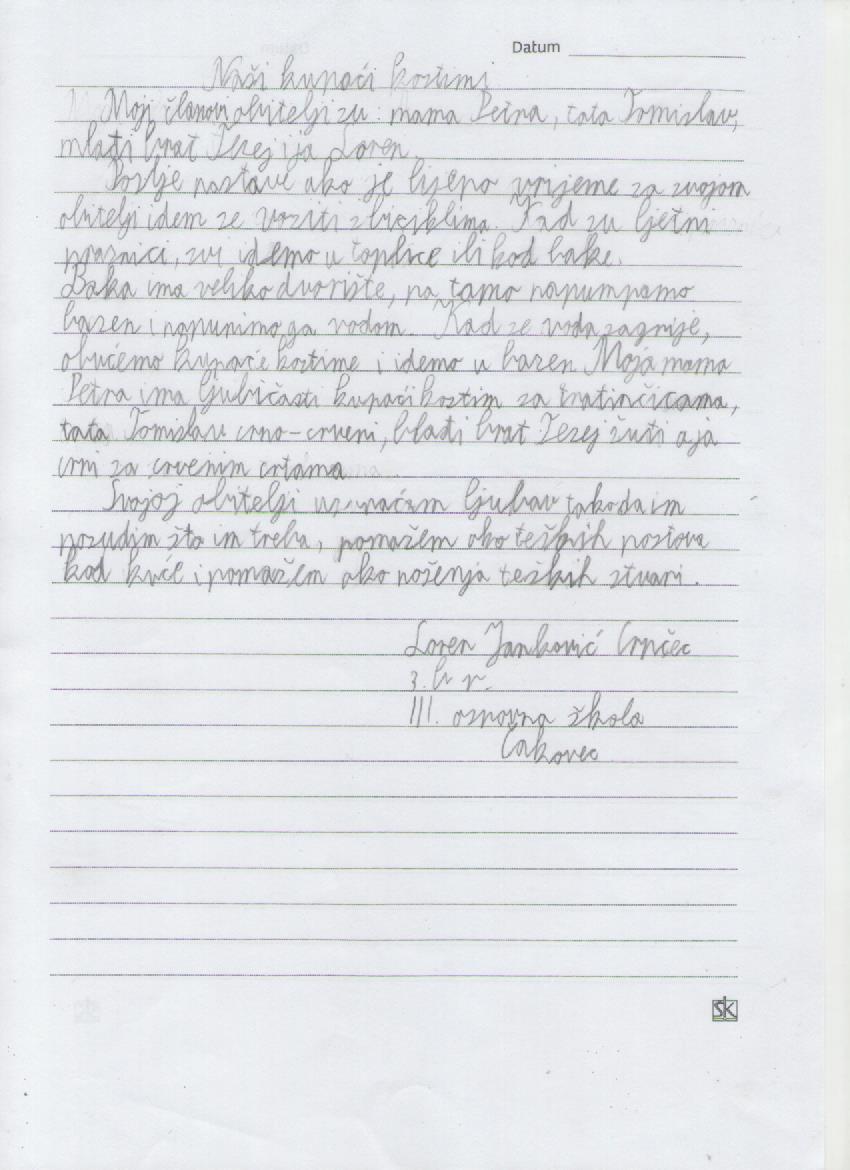 Datum
Naši kupaći kostimi
Moji članovi obitelji su: mama Petra, tata Tomislav,
mlađi brat Tezej i ja Loren.
Poslje nastave ako je lijepo vrijeme sa svojom
obitelji idem se voziti s biciklima. Kad su ljetni
praznici, svi idemo u toplice ili kod bake.
Baka ima veliko dvorište, pa tamo napumpamo
bazen i napunimo ga vodom. Kad se voda zagrije,
obućemo kupaće kostime i idemo u bazen. Moja mama
Petra ima ljubičasti kupaći kostim sa tratinčicama,
tata Tomislav crno-crveni, blađi brat Tezej žuti a ja
crni sa crvenim crtama.
Svojoj obitelji uzvraćam ljubav tako da im
posudim što im treba, pomažem oko teških postova
kod kuće i pomažem oko nošenja teških stvari.
Loren Janković Crnčec
3. b r.
III. osnovna škola
Čakovec
SK